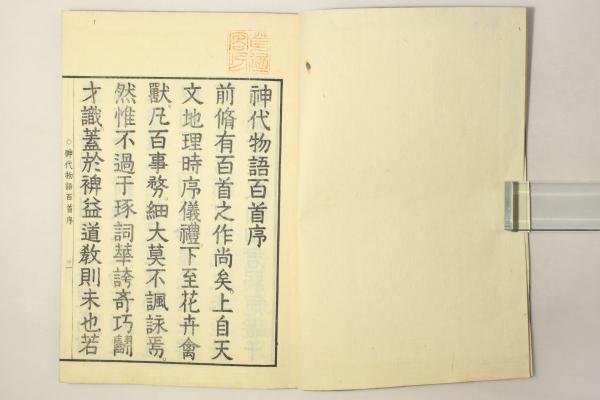 神代物語百首序
前脩有百首之作尚矣。上自天
文地理時序儀禮。下至花卉禽
獸。凡百事務。細大莫不諷詠焉。
然惟不過于琢詞華誇奇巧翻
才識。蓋於裨益道教則未也若
○神代物語百首序